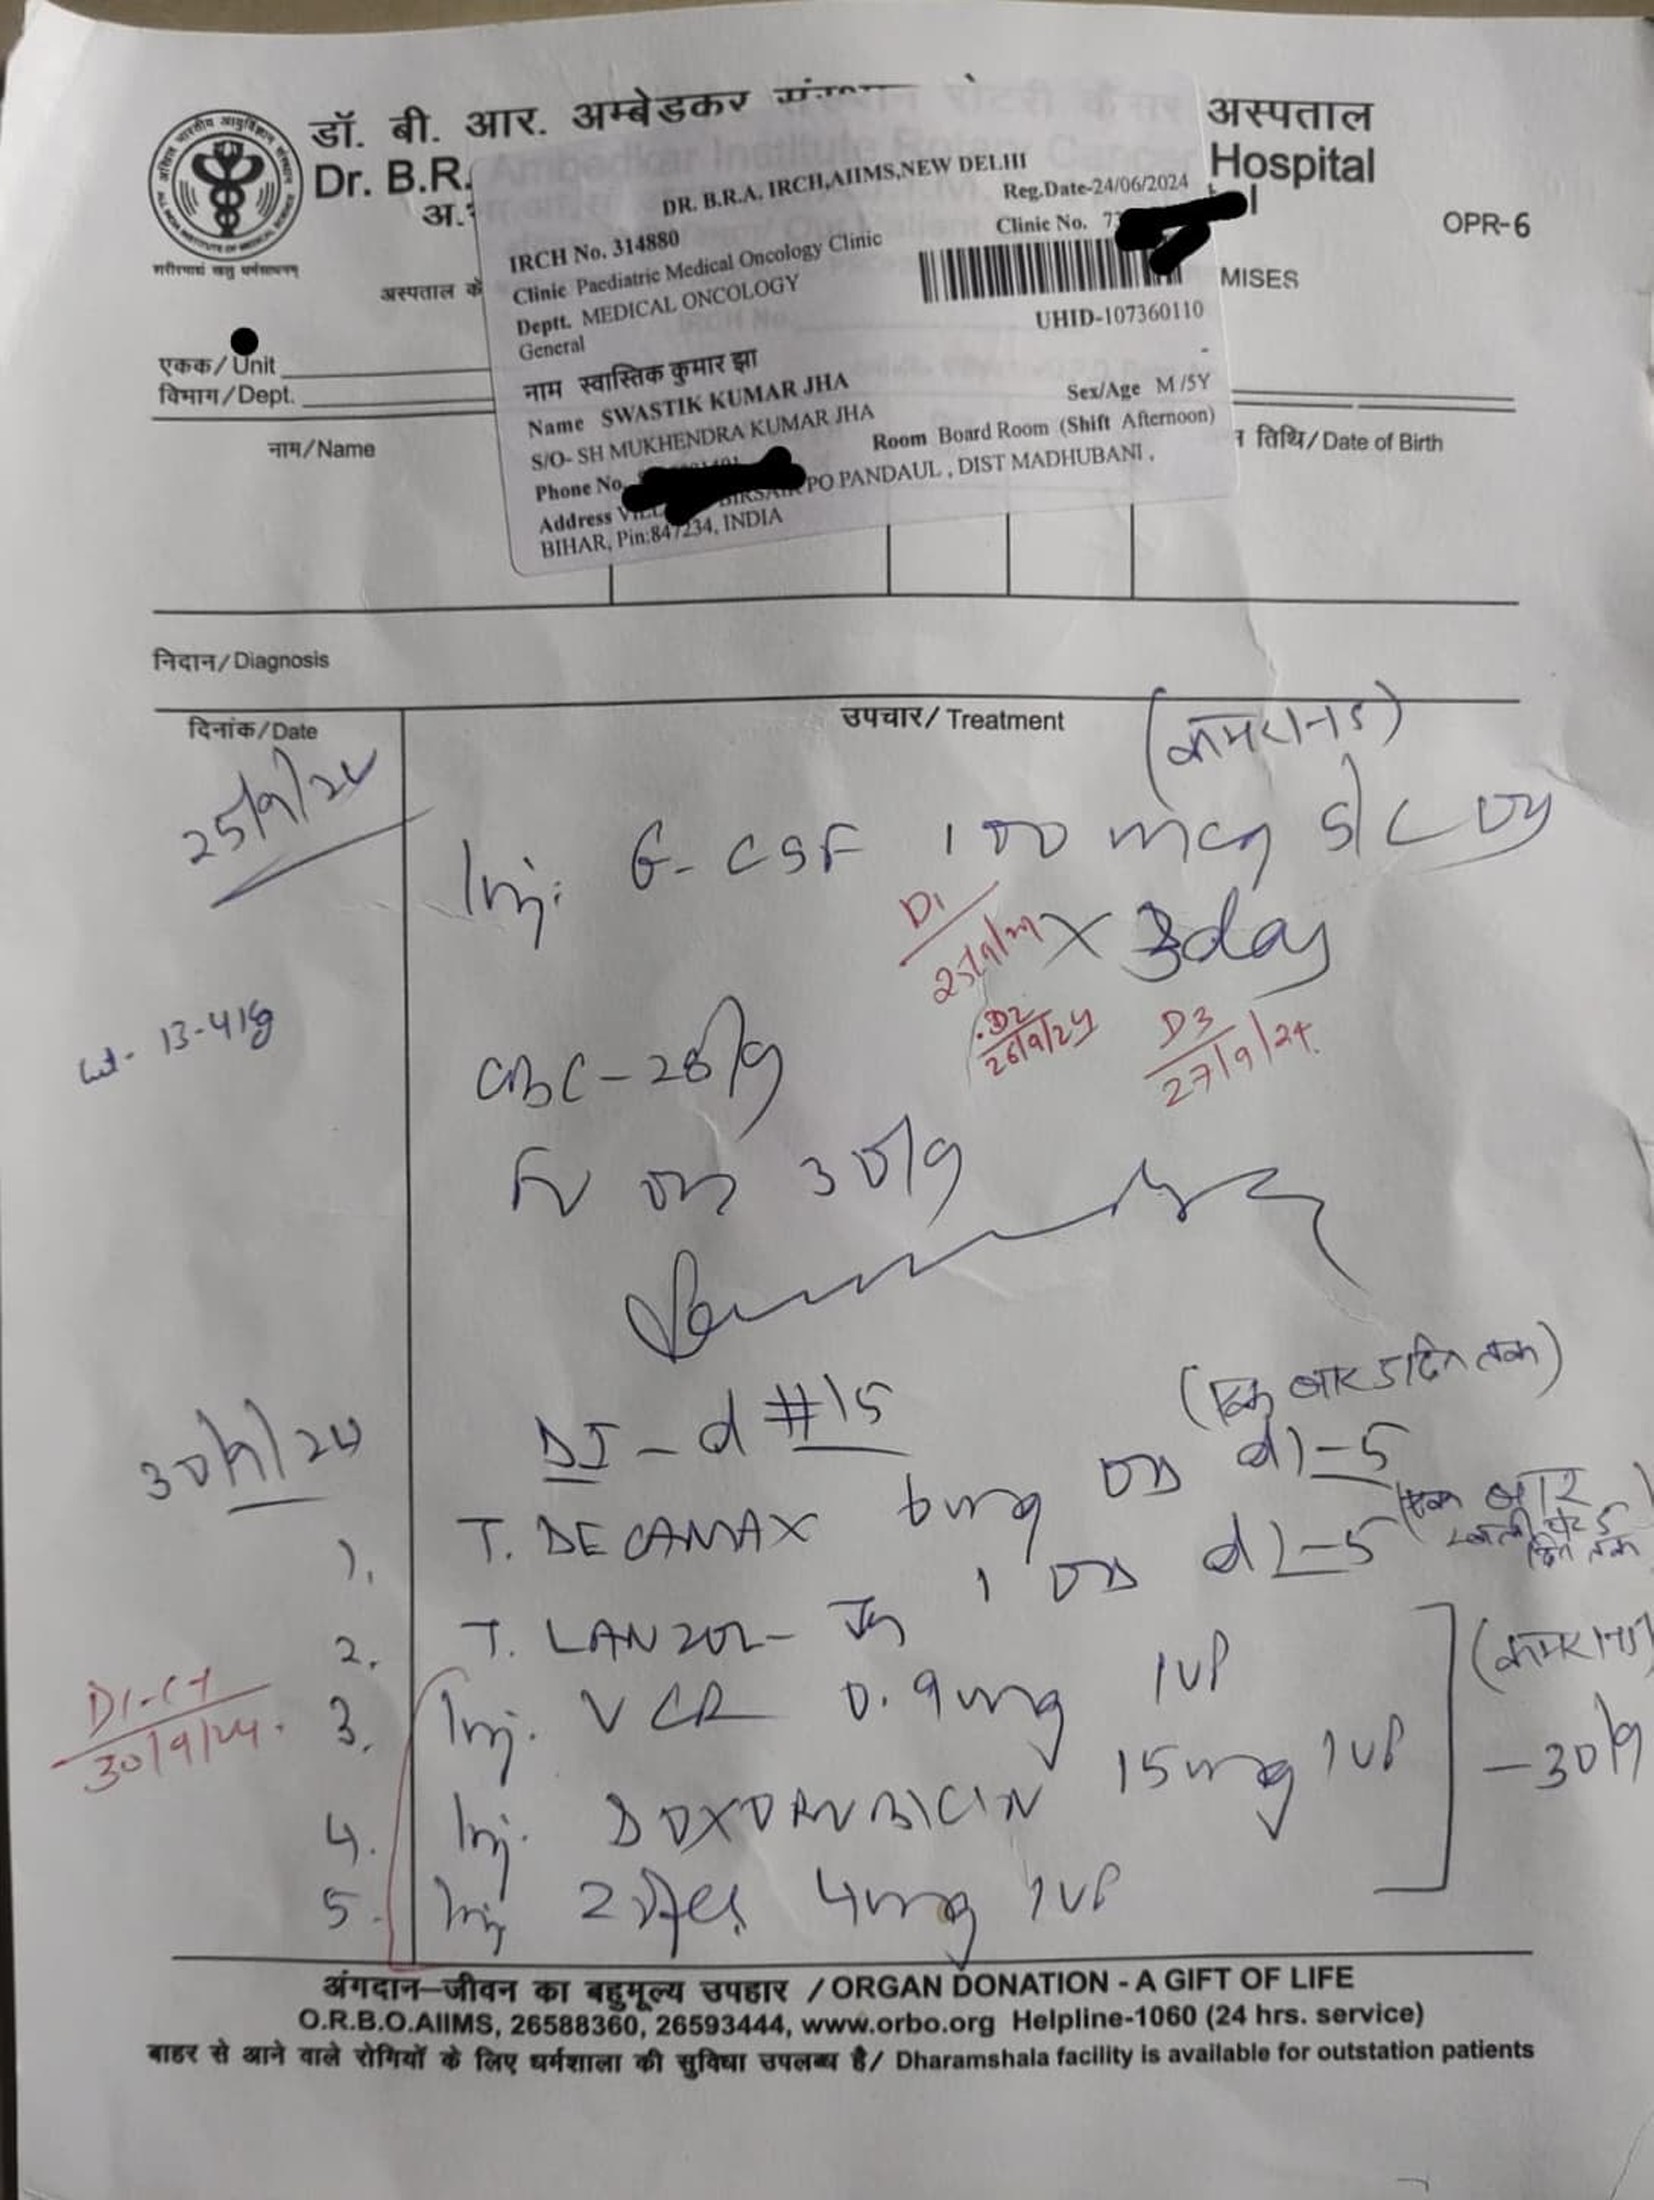 डॉ. बी. आर. अम्बेडकर अस्पताल
Dr. B.R. Hospital
OPR-6
अस्पताल के MISES
DR. B.R.A. IRCH,AIIMS,NEW DELHI
Reg.Date-24/06/2024
IRCH No. 314880
Clinic No. 73
Clinic Paediatric Medical Oncology Clinic
Deptt. MEDICAL ONCOLOGY
General
UHID-107360110
नाम स्वास्तिक कुमार झा
Name SWASTIK KUMAR JHA
Sex/Age M /5Y
S/O- SH MUKHENDRA KUMAR JHA
Room Board Room (Shift Afternoon)
Phone No.
Address PO PANDAUL , DIST MADHUBANI ,
BIHAR, Pin:847234, INDIA
एकक/Unit
विभाग/Dept.
नाम/Name
तिथि/Date of Birth
निदान/Diagnosis
दिनांक/Date
उपचार/ Treatment
25/9/24
(कमरा-15)
Inj. G-CSF 100 mcg s/c OD
x 3day
D1
25/9/24
D2
26/9/24
D3
27/9/24
wt- 13.41kg
CBC - 28/9
on 30/9
30/9/24
DI - d #15
(एक बार 5 दिन तक)
1. T. DECAMAX 6mg OD d1-5
(एक बार खाली पेट 5 दिन तक
2. T. LANZOL- Jn 1 OD d1-5
D1-C1
30/9/24.
3. Inj. VCR 0.9mg IVP
4. Inj. DOXORUBICIN 15mg IVP
5. Inj Zofer 4mg IVP
- 30/9
अंगदान–जीवन का बहुमूल्य उपहार / ORGAN DONATION - A GIFT OF LIFE
O.R.B.O.AIIMS, 26588360, 26593444, www.orbo.org Helpline-1060 (24 hrs. service)
बाहर से आने वाले रोगियों के लिए धर्मशाला की सुविधा उपलब्ध है/ Dharamshala facility is available for outstation patients